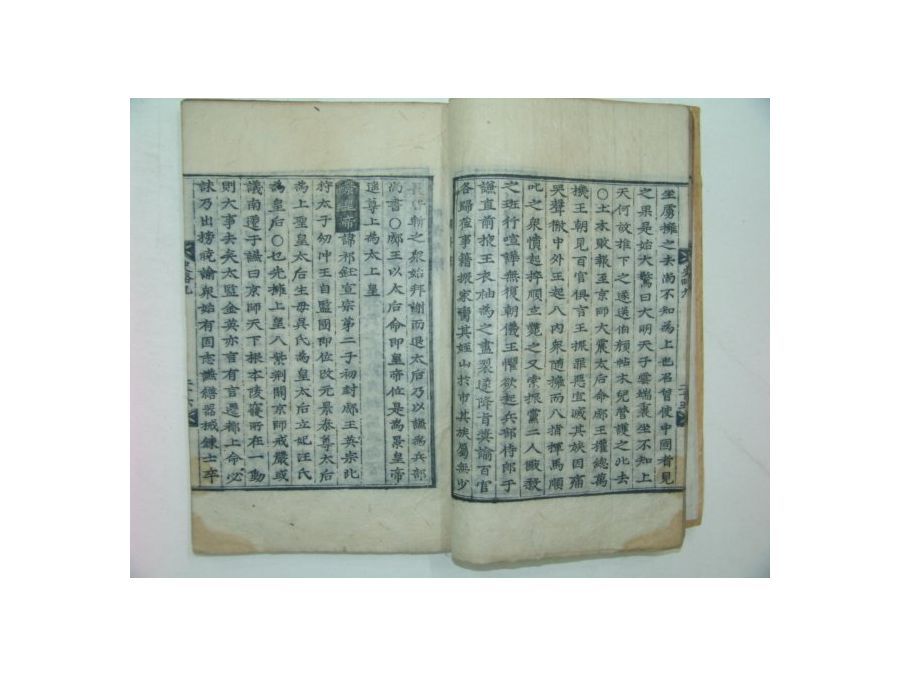 坐虜擁之去尚不知為上也召曾使中國者見
之果是始大驚曰大明天子雲端裏坐不知上
天何故推下之遂送伯顏帖木兒營護之北去
〇土木敗報至京師大震太后命郕王權總萬
機王朝見百官俱言王振罪惡宜滅其族因痛
哭聲徹中外王起入內衆隨擁而入指揮馬順
叱之衆憤起捽順立斃之又索振黨二人毆殺
之班行喧譁無復朝儀王懼欲起兵部侍郎于
謙直前掖王衣袖為之盡裂遂降旨奬諭百官
各歸莅事籍振家臠其姪山於市其族屬無少
長皆斬之衆始拜謝而退太后乃以謙為兵部
尚書〇郕王以太后命即皇帝位是為景皇帝
遙尊上為太上皇
景皇帝諱祁鈺宣宗第二子初封郕王英宗北
狩太子幼冲王自監國即位改元景泰尊太后
為上聖皇太后生母吳氏為皇太后立妃汪氏
為皇后〇乜先擁上皇入紫荆關京師戒嚴或
議南遷于謙曰京師天下根本陵寢所在一動
則大事去矣太監金英亦言有言遷都上命必
誅乃出榜曉諭衆始有固志謙繕器械鍊士卒